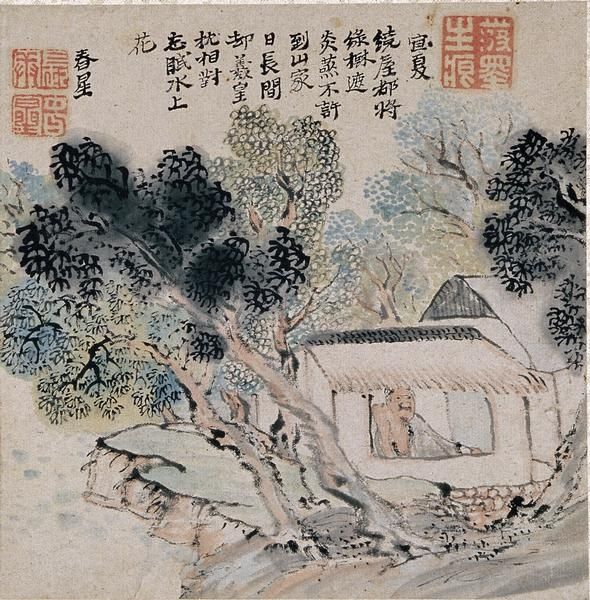 宜夏
繞屋都將
緑樹遮
炎蒸不許
到山家
日長間
却羲皇
枕相對
忘眠水上
花
春星